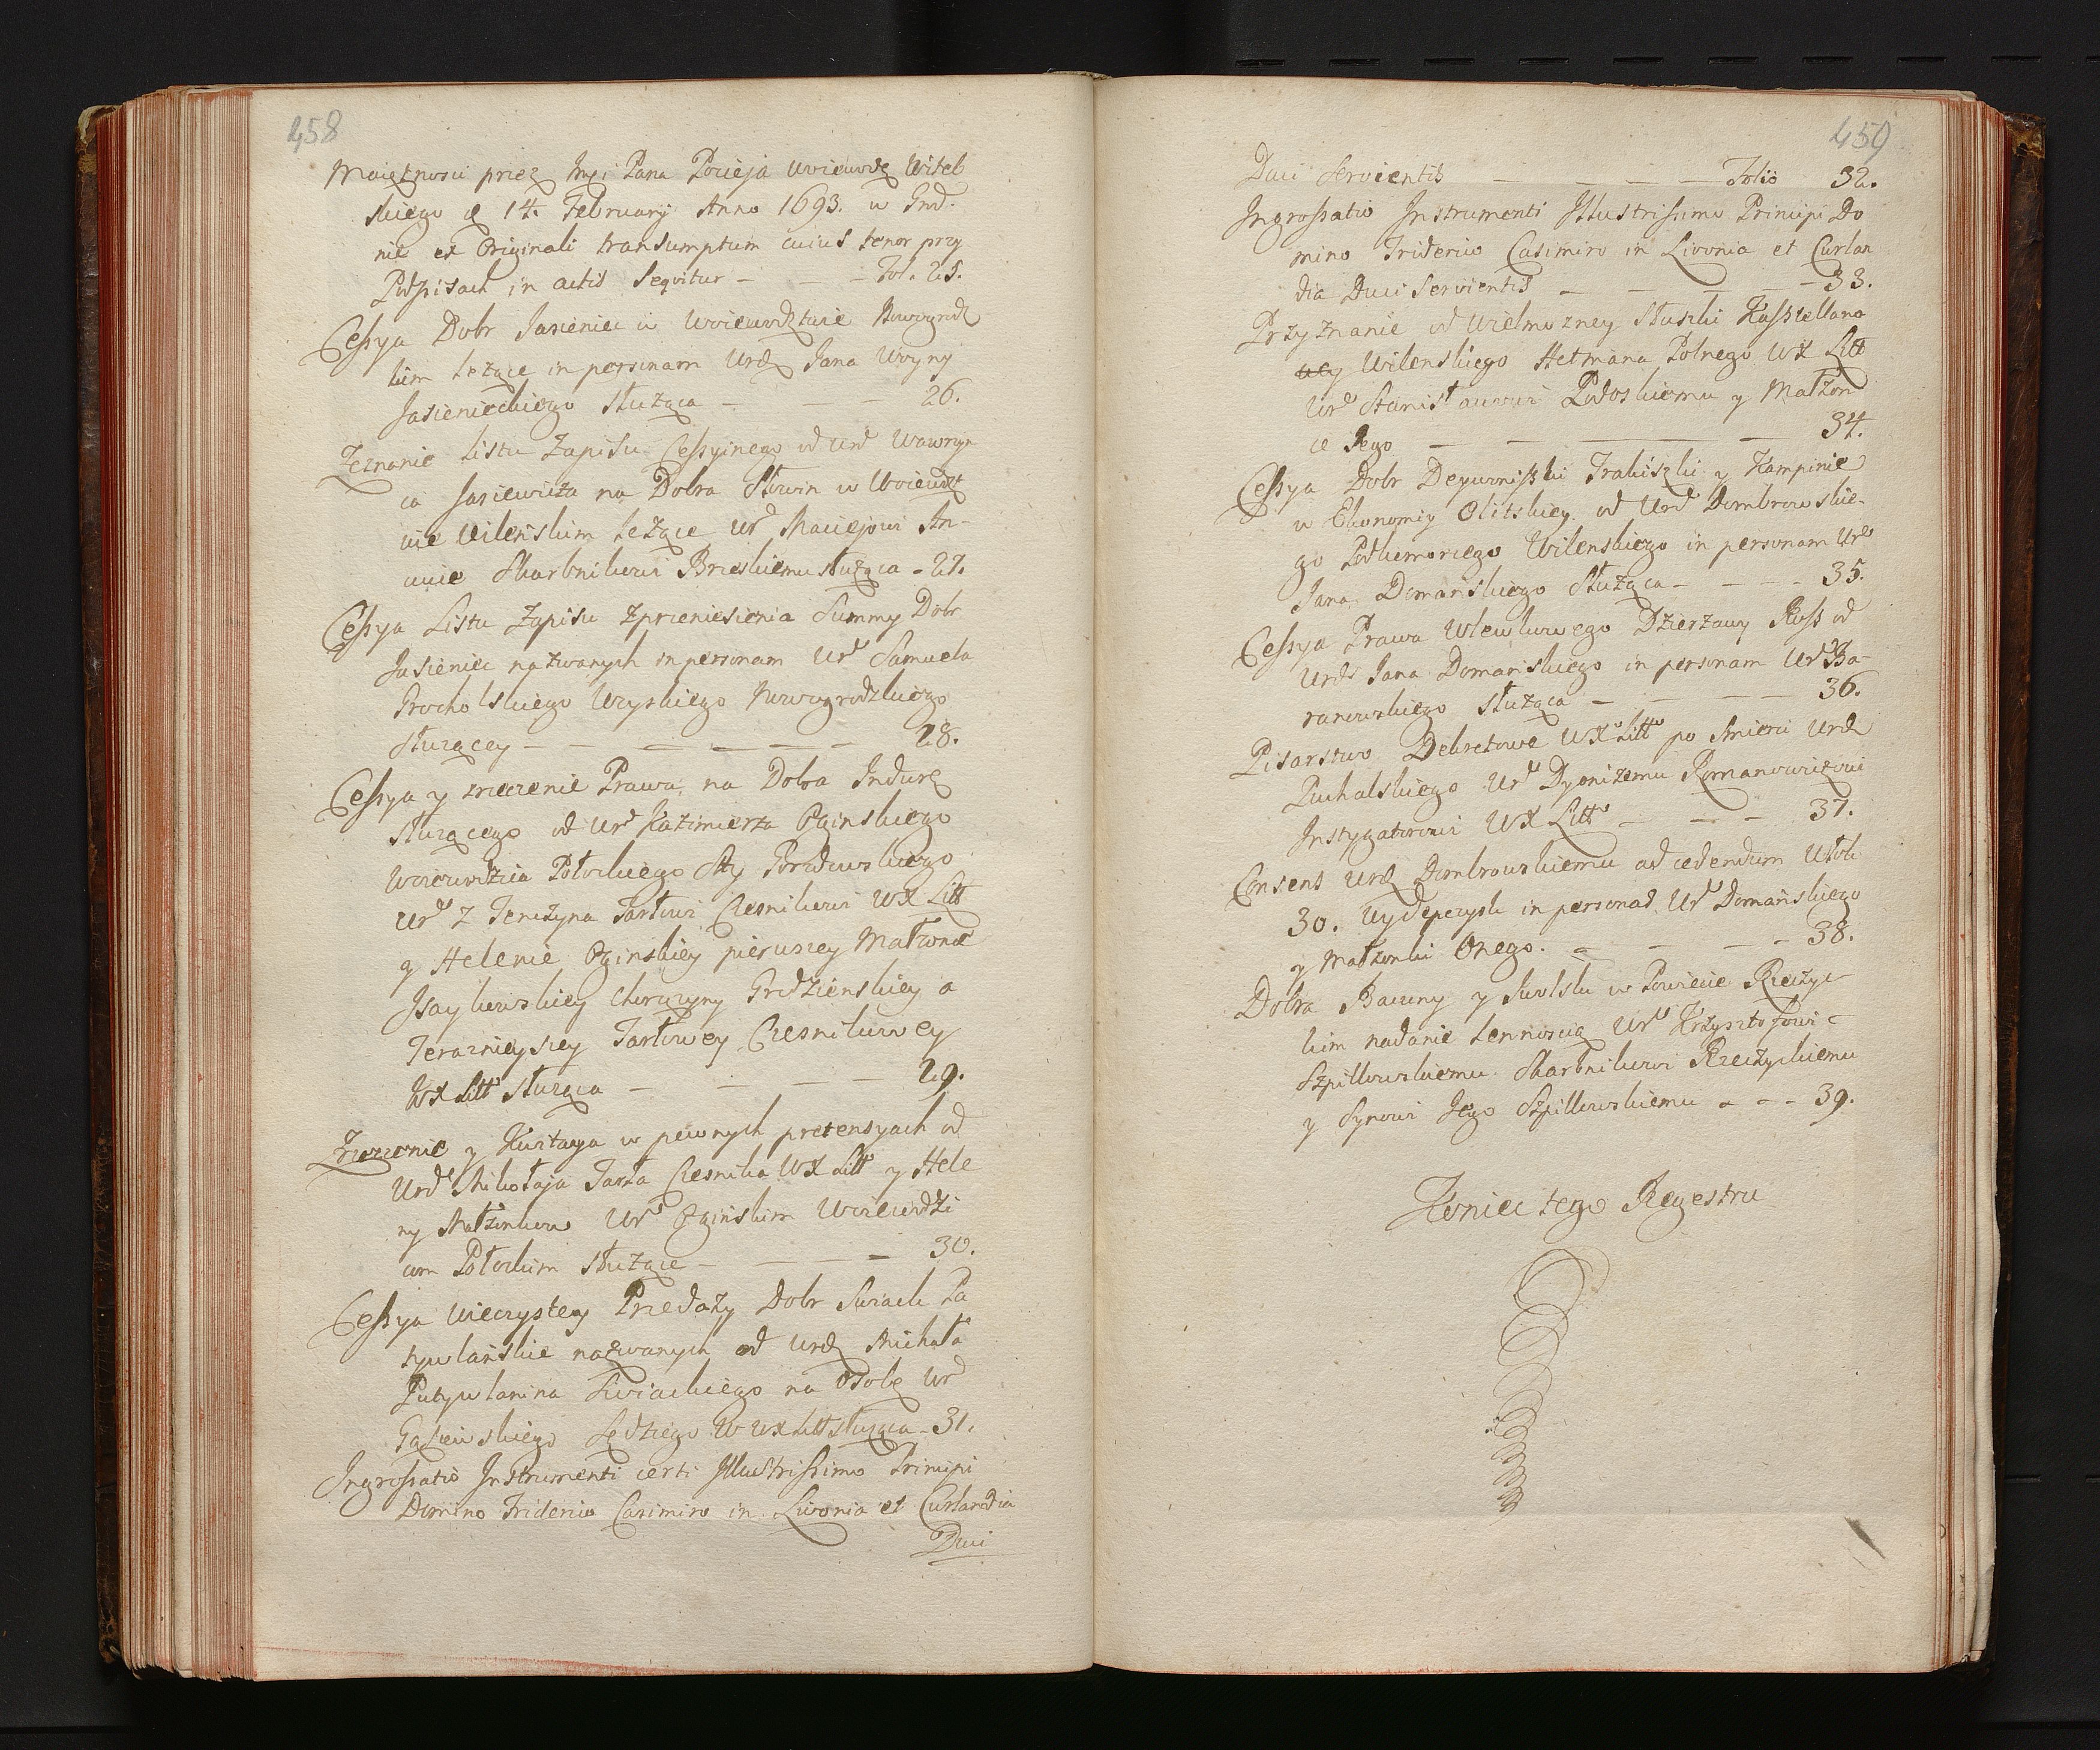 458
Maiętnosci przez Imci Pana Pocieja Woiewodę Witeb
skiego d 14. February Anno 1693. w Grod-
nie ex Originali transumptum cuius tenor przy
Podpisach in actis Sequitur — — — Fol. 25.
Cessya Dobr Jasieniec w Woiewodztwie Nowogrodz
kim leżące in personam Urodz Jana Woyny
Jasienieckiego służąca — — — 26.
Zeznanie Listu Zapisu Cessyinego od Urod Wawrzyn
ca Jasiewicza na Dobra Słowin w Woiewodzt
wie Wileńskim leżące Ur Maciejowi An-
cucie Skarbnikowi Brzeskiemu służąca - 27.
Cessya Listu Zapisu z przeniesienia Summy Dobr
Jasieniec nazwanych in personam Ur Samuela
Grocholskiego Woyskiego Nowogrodzkiego
służącey — — — — — — 28.
Cessya y zrzeczenie Prawa, na Dobra Indurę
służącego od Ur Kazimierza Oginskiego
Woiewodzica Połockiego Stty Poraduwskiego
Ur Z Tenczyna Tarłowi Czesnikowi WX Litt
y Helenie Oginskiey pierwszey Małżonce
Isaykowskiey Chorązyny Grodzienskiey a
Teraznieyszey Tarłowey Czesnikowey
WX Litt służąca — — — — 29.
Zrzeczenie y Kwitacya w pewnych pretensyach od
Urod Mikołaja Tarła Czesnika WX Litt y Hele
ny Małżonkow Ur Ogińskim Woiewodzi
com Połockim służące — — — 30.
Cessya Wieczystey Przedaży Dobr Swiack Pu
tywlańskie nazwanych od Urodz Michała
Putywlanina Swiackiego na Osobę Ur
Gąsiewskiego Sędziego W WX Litt służąca - 31.
Ingrossatio Instrumenti certi Illustrissimo Principi
Domino Friderico Casimiro in Livonia et Curlandia
Duci
459
Duci Servientis — — — — Folio 32.
Ingrossatio Instrumenti Illustrissimo Principi Do
mino Friderico Casimiro in Livonia et Curlan
dia Duci Servientis — — — — 33.
Przyznanie od Wielmozney Słuszki Kasztellano
wey Wilenskiego Hetmana Polnego WX Litt
Ur Stanisławowi Podoskiemu y Małżon
ce Jego — — — — 34.
Cessya Dobr Deguwniszki Trakiszki y Kampinie
w Ekonomiy Olitskiey od Urod Dombrowskie-
go Podkomorzego Wilenskiego in personam Ur
Jana Domańskiego Służąca — — — - 35.
Cessya Prawa Wlewkowego Dzierżawy Russ od
Urodz Jana Domańskiego in personam Ur Ba-
ranowskiego służąca — — — — 36.
Pisarstwo Dekretowe WX Litt po Smierci Urodz
Puchalskiego Ur Dyonizemu Romanowiczowi
Instygatorowi WX Litt — — - 37.
Consens Urodz Dombrowskiemu ad cedendum Włok
30. Wydepczysk in personas Ur Domańskiego
y Małżonki Onego. — — — - 38.
Dobra Baceny y Swolsk w Powiecie Rzeczyc-
kim nadanie lennoscią Ur Krzysztofowi -
Szpillowskiemu Skarbnikowi Rzeczyckiemu
y Synowi Jego Szpillowskiemu - - - 39.
Koniec tego Regestru